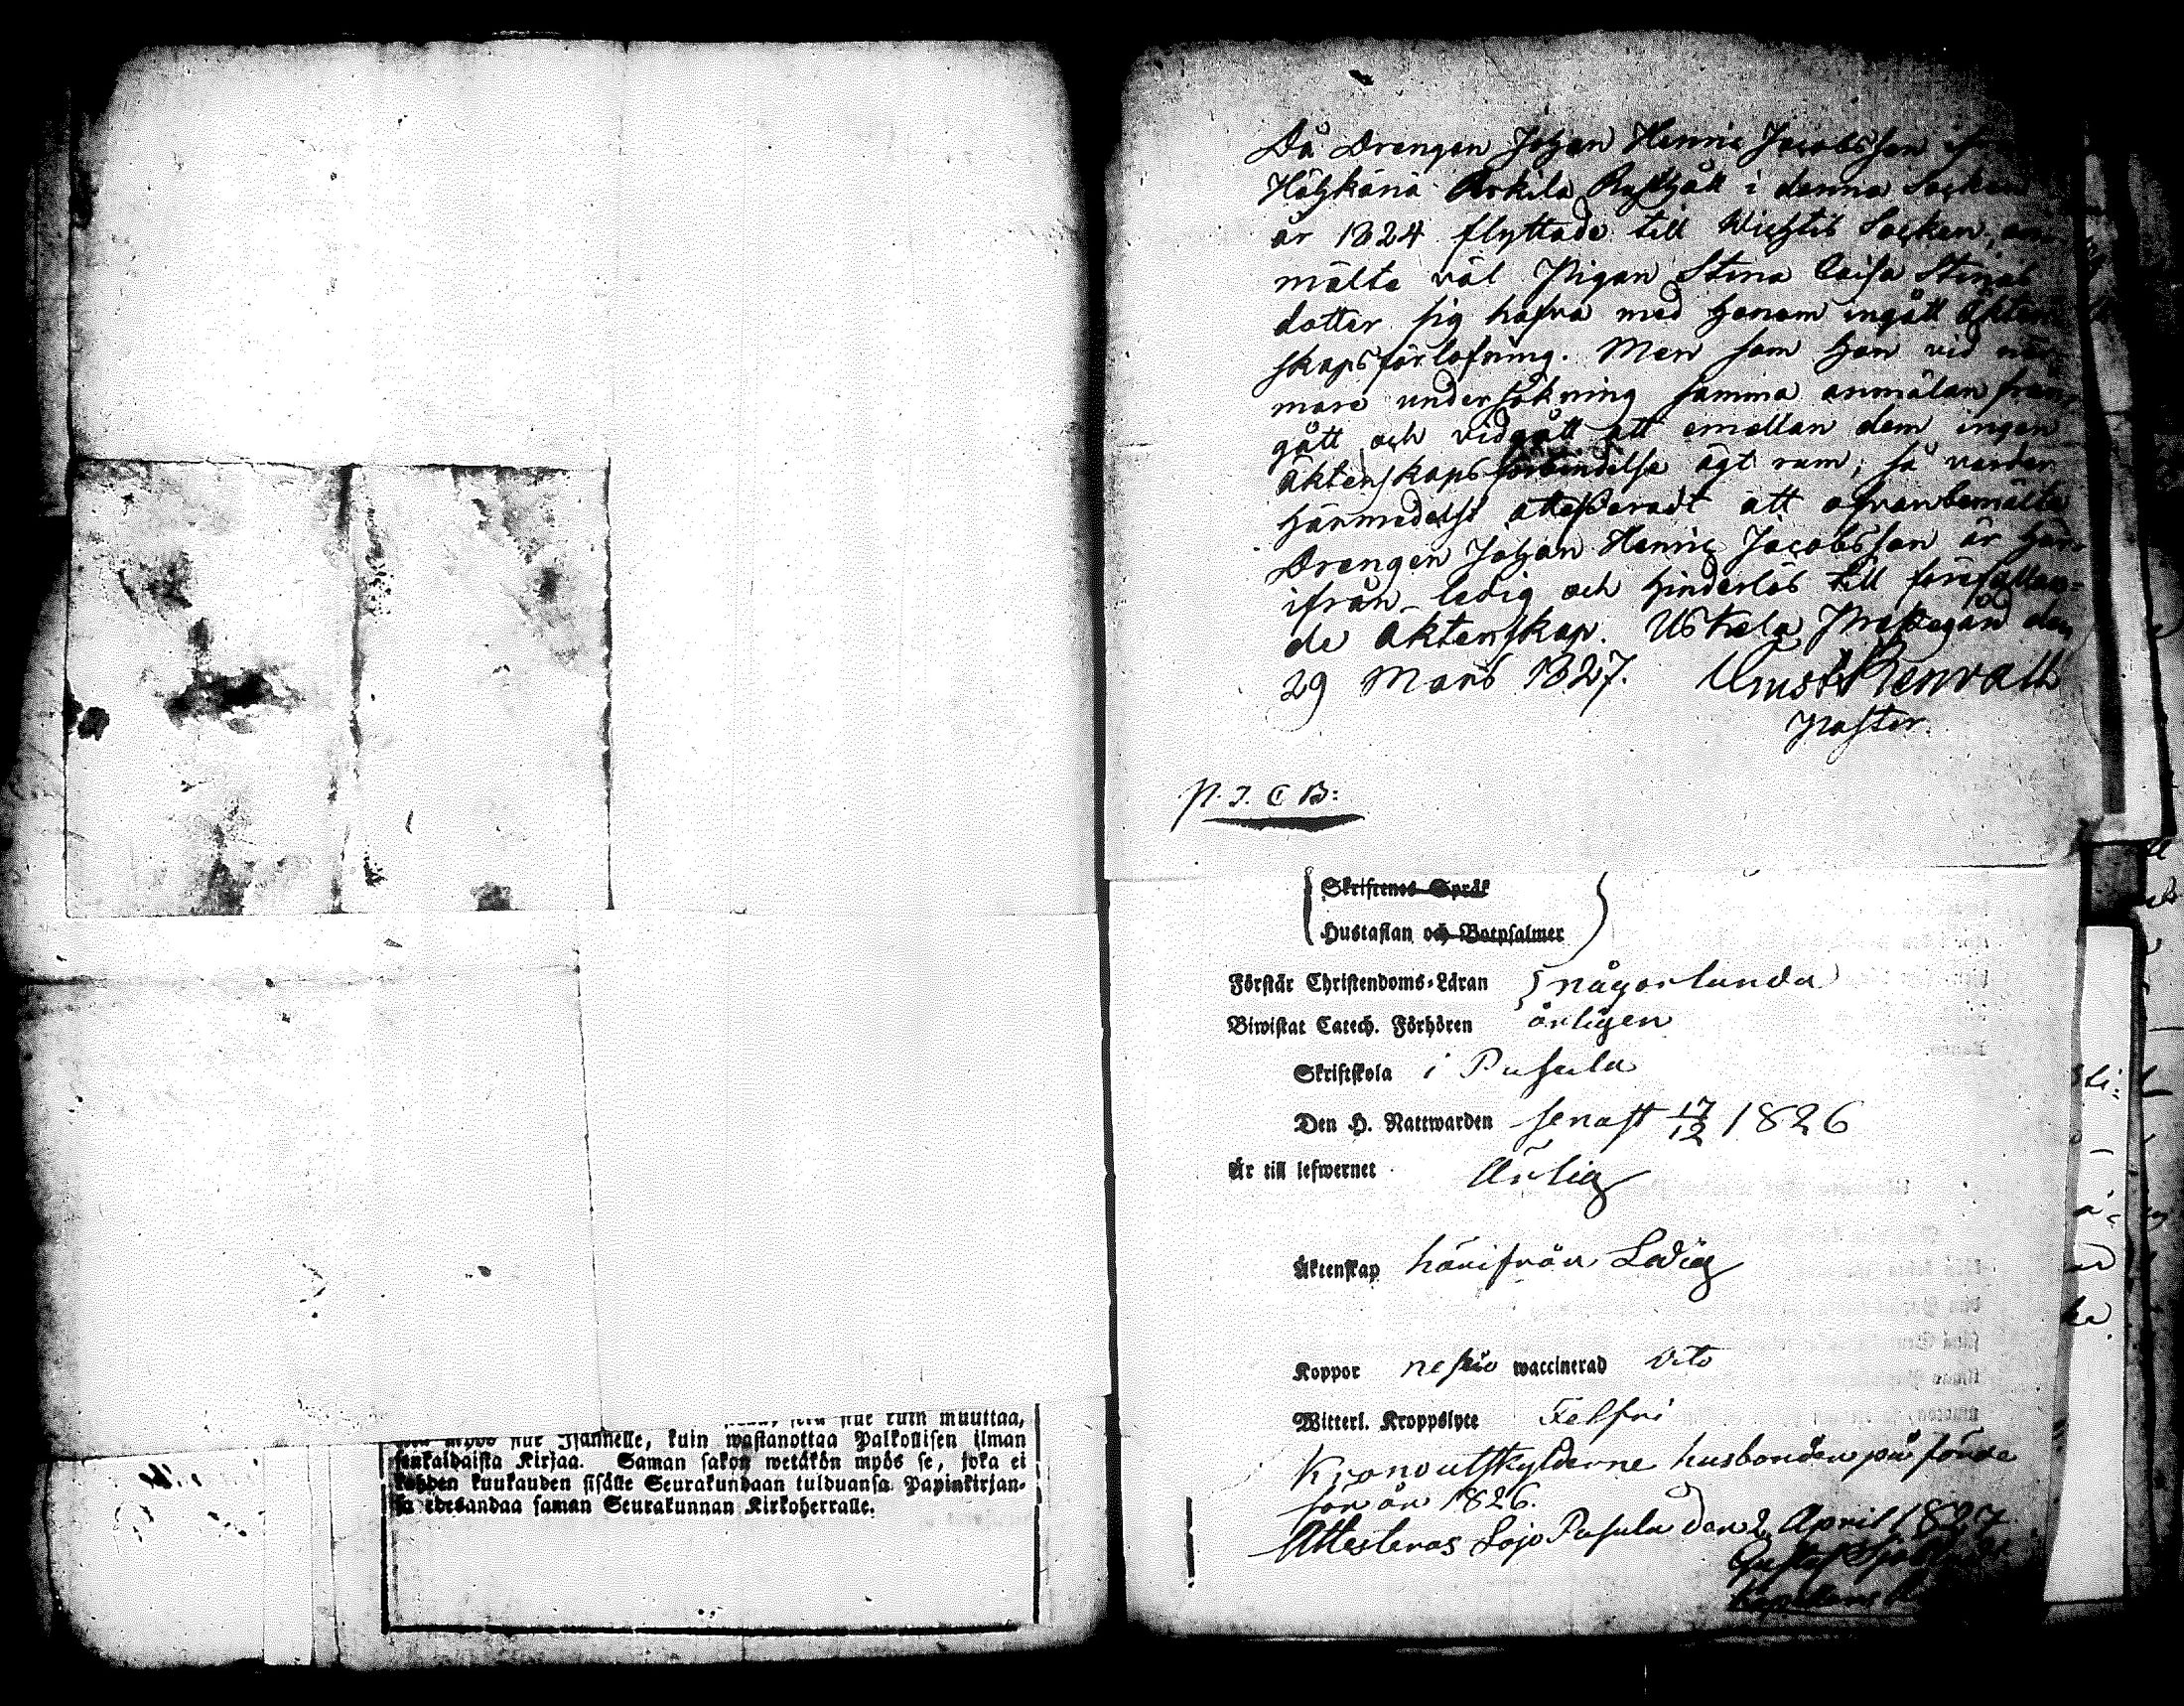 muuttaa,
Isännelle, kuin wastanottaa Palkollisen ilman
senkaldaista Kirjaa. Saman sakon wetäkön myös se, joka ei
kahden kuukauden sisälle Seurakundaan tulduansa Papinkirjan-
sa edesandaa saman Seurakunnan Kirkoherralle.
Då Drengen Johan Henric Jacobsson
i denna Socken
år 1824 flyttade till Wichtis Socken, an-
mälte väl Pigan Stina Caisa
dotter sig hafva med honom ingått Äkten-
skapsförlofning. Men som hon vid när-
mare undersökning samma anmälan från-
gått och vidgått att emellan dem ingen
Äktenskapsförbindelse ägt rum; så varder
härmedelst attesteradt att ofvanbemälte
Drengen Johan Henric Jacobsson är här-
ifrån ledig och hinderlös till förefallan-
de äktenskap. Uskela Prestegård den
29 Mars 1827.
Pastor.
P. T. C B:
Skriftenes Språk
Hustaflan och Botpsalmer
Förstår Christendoms-Läran någorlunda
Biwistat Catech. Förhören årligen
Skriftskola i Pusula
Den H. Nattwarden senast 17/12 1826
Är till lefwernet Ärlig
Äktenskap härifrån Ledig
Koppor waccinerad dito
Witterl. Kroppslyte Felfri
Kronoutskylderne husbonden påförde
för år 1826.
Attesteras Lojo Pusula den 2 April 1827
Gustaf